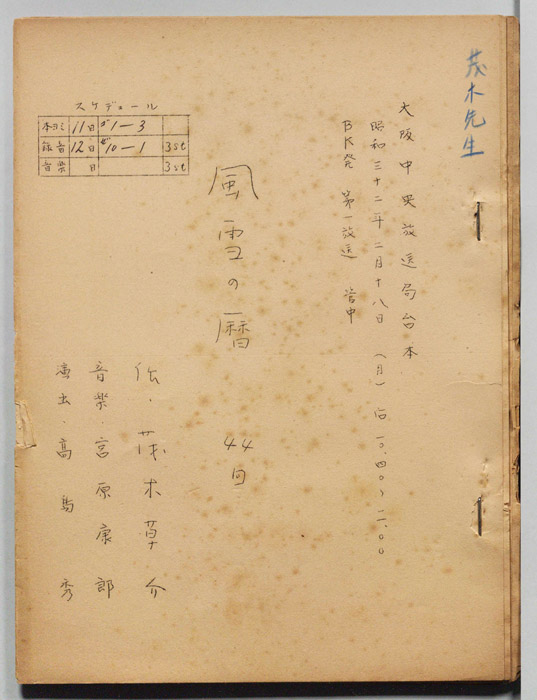 茂木先生
大阪中央放送局台本
昭和三十二年二月十八日 (月) 后一〇.四〇〜一一.〇〇
BK発 第一放送 管中
風雪の暦 44回
作・茂木草介
音楽・宮原康郎
演出・高島 秀
スケデュール
本ヨミ 11日 1—3
録音 12日 10—1 3st
音楽 日 3st